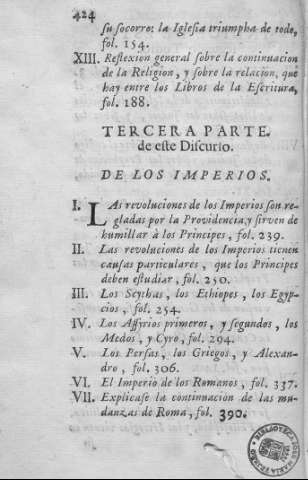 424
su socorro: la Iglesia triumpha de todo,
fol. 154.
XIII. Reflexion general sobre la continuacion
de la Religion, y sobre la relacion, que
hay entre los Libros de la Escritura,
fol. 188.
TERCERA PARTE.
de este Discurso.
DE LOS IMPERIOS.
I. LAs revoluciones de los Imperios son re-
gladas por la Providencia, y sirven de
humillar à los Principes, fol. 239.
II. Las revoluciones de los Imperios tienen
causas particulares, que los Principes
deben estudiar, fol. 250.
III. Los Scythas, los Ethiopes, los Egyp-
cios, fol. 254.
IV. Los Assyrios primeros, y segundos, los
Medos, y Cyro, fol. 294.
V. Los Persas, los Griegos, y Alexan-
dro, fol. 306.
VI. El Imperio de los Romanos, fol. 337.
VII. Explicase la continuacion de las mu-
danzas de Roma, fol. 390.